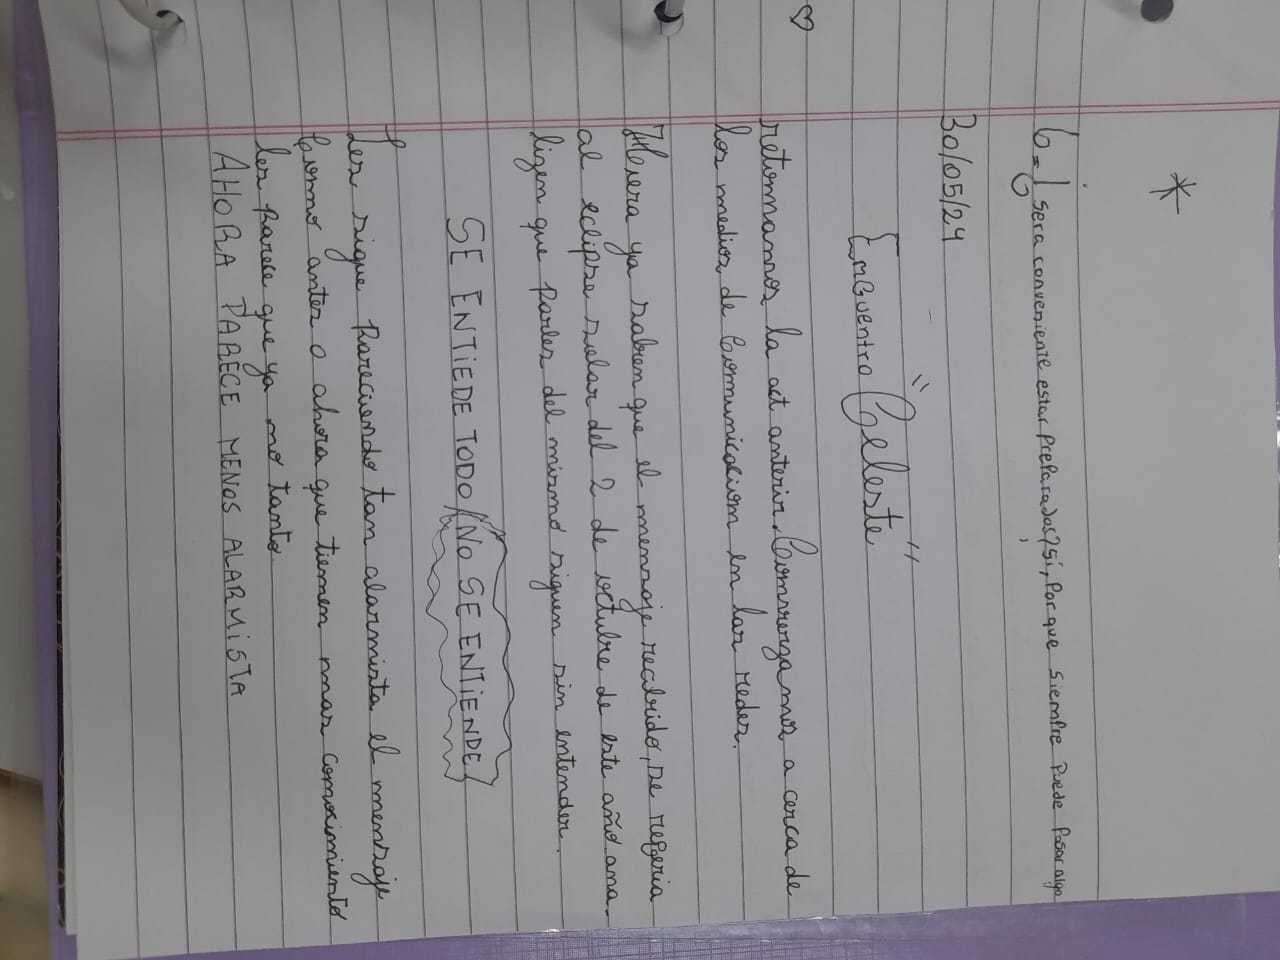 6=¿será conveniente estar preparados? sí, Por que siempre puede pasar algo
30/05/24
Encuentro "Celeste"
retomamos la act anterir. Comrrenzamos a cerca de
los medios de Comunicacion en las redes.
Ahora ya saben que el mensaje recibido, se referia
al eclipse solar del 2 de octubre de este año. ana-
lizen que partes del mismo siguen sin entender.
SE ENTIEDE TODO/NO SE ENTIENDE
Les sigue pareciendo tan alarmista el mensaje
Como antes o ahora que tienen mas conocimiento
les parece que ya no tanto.
AHORA PARECE MENOS ALARMISTA